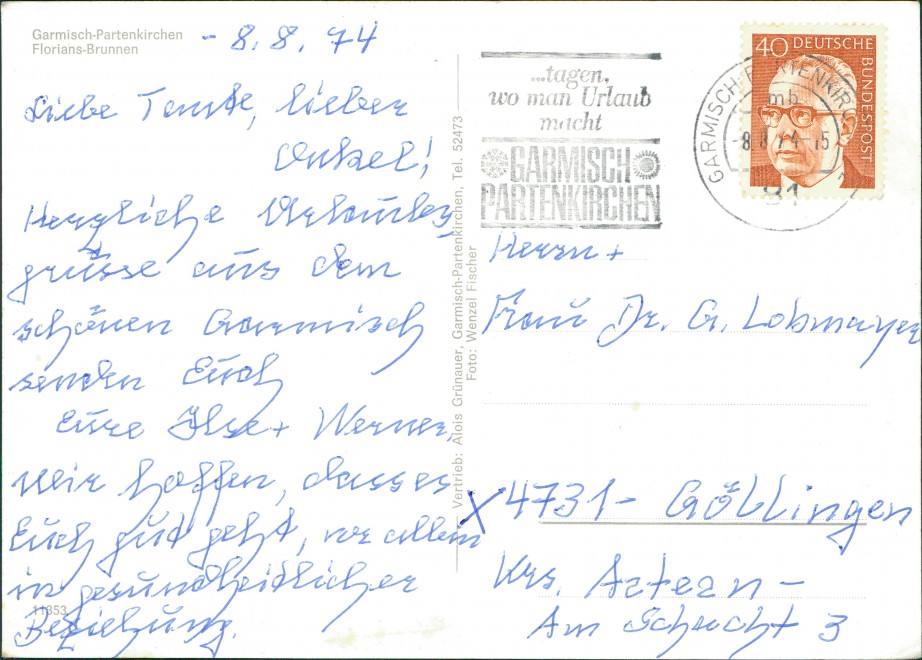 Garmisch-Partenkirchen
Florians-Brunnen
- 8.8.74
Liebe Tante, lieber
Onkel!
Herzliche Urlaubs-
grüsse aus dem
schönen Garmisch
senden Euch
Eure Ilse + Werner.
Wir hoffen, dass es
Euch gut geht, vor allem
in gesundheitlicher
Beziehung.
11353
Vertrieb: Alois Grünauer, Garmisch-Partenkirchen, Tel. 52473
Foto: Wenzel Fischer
...tagen,
wo man Urlaub
macht
GARMISCH
PARTENKIRCHEN
GARMISCH-PARTENKIRCHEN
mb
-8.8.74-15
81
40 DEUTSCHE
BUNDESPOST
Herrn +
Frau Dr. G. Lobmayer
X 4731- Göllingen
Krs. Artern-
Am Schacht 3